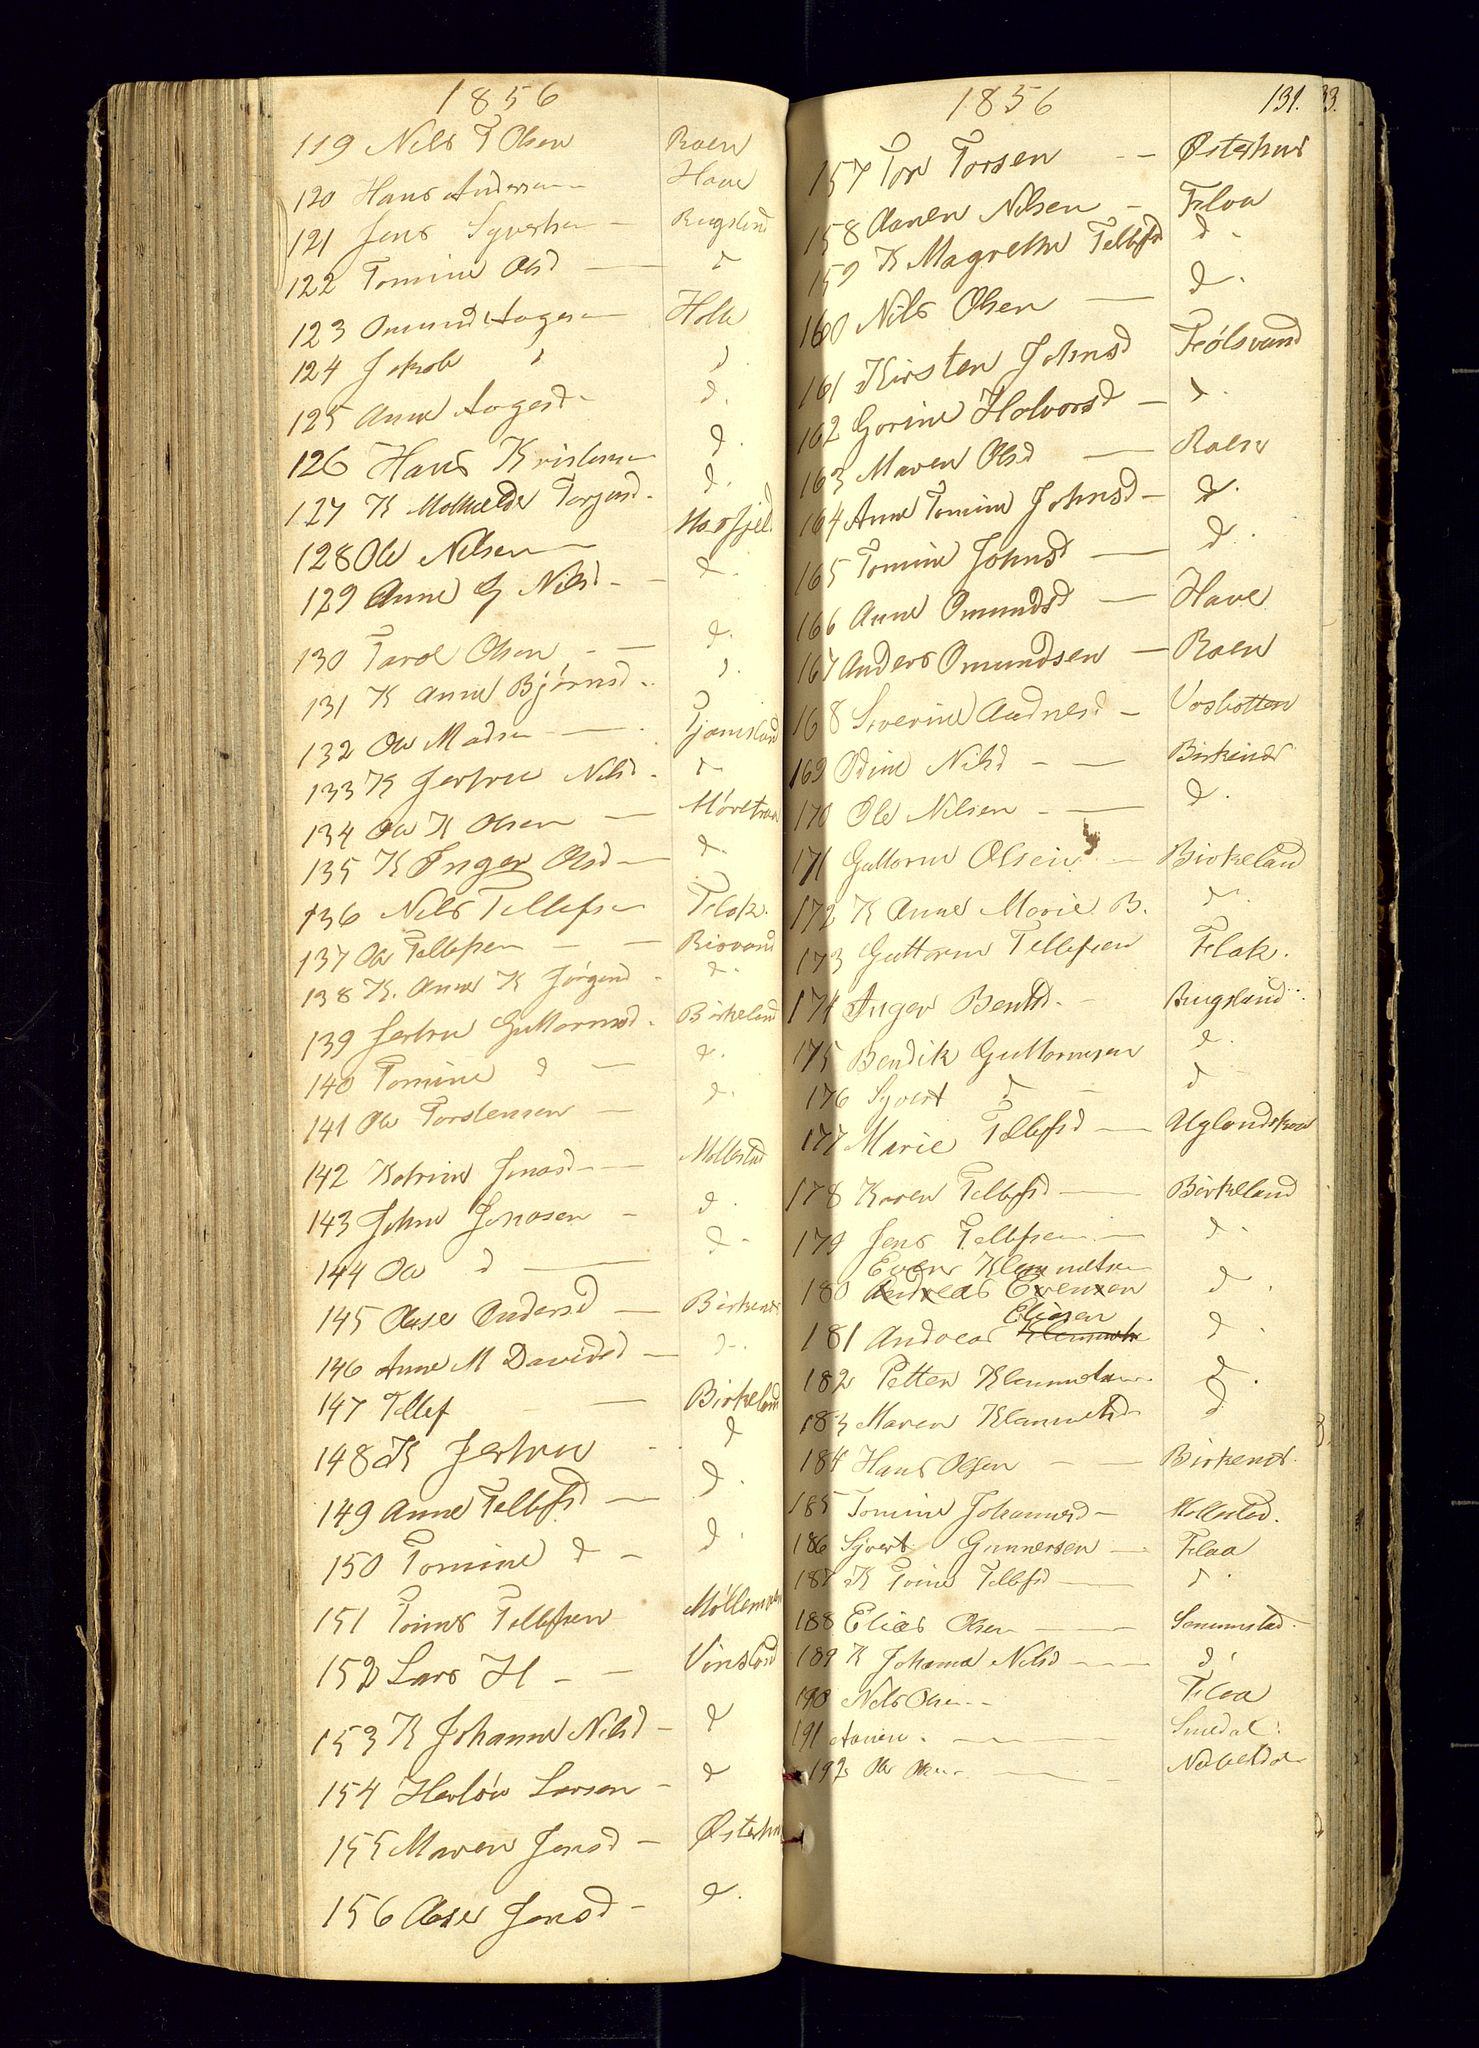 1856
119 Nils T Olsen Roen
120 Hans Andersen Have
121 Jens Syvertsen — Rugslnd
122 Tomine Olsd — d
123 Omund Aagesen Holte
124 Jakob d d.
125 Anne Aagesd - d.
126 Hans Kristensen d.
127 K Mathilde Torjusd. d.
128 Ole Nilsen —
129 Anne G Nilsd - - d.
130 Tarol Olsen - — d.
131 K Anne Bjørnsd - d.
132 Ole Madsen — Tjomsland
133 K Jertrue Nilsd - d
134 Ole K Olsen —
135 K Inger Olsd — d.
136 Nils Tellefsen Flak.
137 Ole Tellefsen — — Risvand
138 K. Anne K Jørgensd - d.
139 Jertrue Guttormsd. Birkeland
140 Tomine d — d.
141 Ole Torstensen — d.
142 Katrine Jonasd — Mollestad
143 John Jonasen - d.
144 Ole d — d.
145 Aase Andersd — Birkends
146 Anne M Davidsd — d.
147 Tellef — Birkeland
148 K Jertrue - d
149 Anne Tellefsd — d.
150 Tomine d — d.
151 Tønnes Tellefsen
152 Lars H — — Vinsland
153 K Johanne Nilsd — d
154 Herløv Larsen - d
155 Maren Jensd — Østerhus
156 Aase Jensd - d.
1856 131. 33.
157 Tor Torsen — Østerhus
158 Aanen Nilsen - Flaa
159 K Magrethe Tellefsd d -
160 Nils Olsen — d.
161 Kirsten Johnsd
162 Gorine Halvorsd — d.
163 Maren Olsd — Roen
164 Anne Tomine Johnsd - d.
165 Tomine Johnsd — d.
166 Anne Omundsd — Have
167 Anders Omundsen — Roen
168 Severine Audnesd — Vosbotten
169 Odine Nilsd - — Birkends
170 Ole Nilsen - — d.
171 Guttorm Olsen — Birkeland
172 K Anne Marie B. d.
173 Guttorm Tellefsen Flak.
174 Inger Bentsd. - Rugsland
175 Bendik Guttormsen d.
176 Syvert d - d
177 Marie Tellefsd —
178 Karen Tellefsd — Birkeland
179 Jens Tellefsen — d.
Even Klemmetsen
180 Andreas Evensen d.
Eliasen
181 Andreas Klemmets d.
182 Petter Klemmetsen. d.
183 Maren Klemmetsd d
184 Hans Olsen - — Birkends.
185 Tomine Johannesd — Mollestad.
186 Syvert Gunnersen — Flaa
187 K Tomine Tellefsd — d.
188 Elias Olsen — —
189 K Johanne Nilsd — d.
190 Nils Olsen - - Flaa
191 Aanen. — — — Smedal.
192 Ole Olsen - —